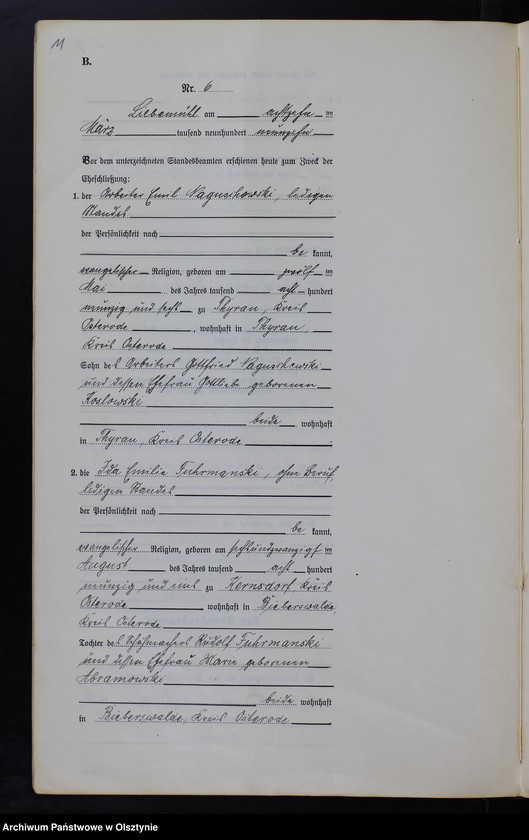 11
B.
Nr. 6
Liebemühl am achtzehn ten
März tausend neunhundert neunzehn
Vor dem unterzeichneten Standesbeamten erschienen heute zum Zweck der
Eheschließung:
1. der Arbeiter Emil Naguschewski, ledigen
Standes
der Persönlichkeit nach
be kannt,
evangelischer Religion, geboren am zwölf ten
Mai des Jahres tausend acht hundert
neunzig und sechs zu Thyrau, Kreis
Osterode, wohnhaft in Thyrau,
Kreis Osterode
Sohn des Arbeiters Gottfried Naguschewski
und dessen Ehefrau Gottliebe geborenen
Koslowski
beide wohnhaft
in Thyrau, Kreis Osterode.
2. die Ida Emilie Fuhrmanski, ohne Beruf,
ledigen Standes
der Persönlichkeit nach
be kannt,
evangelischer Religion, geboren am sechsundzwanzigst ten
August des Jahres tausend acht hundert
neunzig und eins zu Kernsdorf Kreis
Osterode, wohnhaft in Bieberswalde,
Kreis Osterode
Tochter des Schuhmachers Rudolf Fuhrmanski
und dessen Ehefrau Marie geborenen
Abramowski
beide wohnhaft
in Bieberswalde, Kreis Osterode.
Archiwum Państwowe w Olsztynie